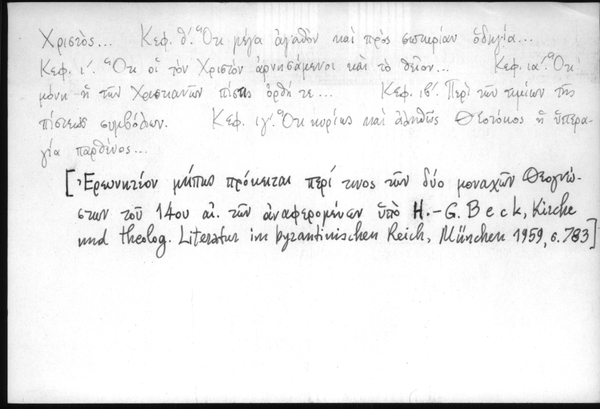 Χριστὸς... Κεφ. θ΄. Ὅτι μέγα ἀγαθὸν καὶ πρὸς σωτηρίαν ὁδηγία...
Κεφ. ι΄. Ὅτι οἱ τὸν Χριστὸν ἀρνησάμενοι καὶ τὸ θεῖον... Κεφ. ια΄. Ὅτι
μόνη ἡ τῶν Χριστιανῶν πίστις ὀρθή τε... Κεφ. ιβ΄. Περὶ τῶν τιμίων τῆς
πίστεως συμβόλων. Κεφ. ιγ΄. Ὅτι κυρίως καὶ ἀληθῶς Θεοτόκος ἡ ὑπερα-
γία παρθένος...
[Ἐρευνητέον μήπως πρόκειται περί τινος τῶν δύο μοναχῶν Θεογνώ-
στων τοῦ 14ου αἰ. τῶν ἀναφερομένων ὑπὸ H.-G. Beck, Kirche
und theolog. Literatur im byzantinischen Reich, München 1959, σ. 783]